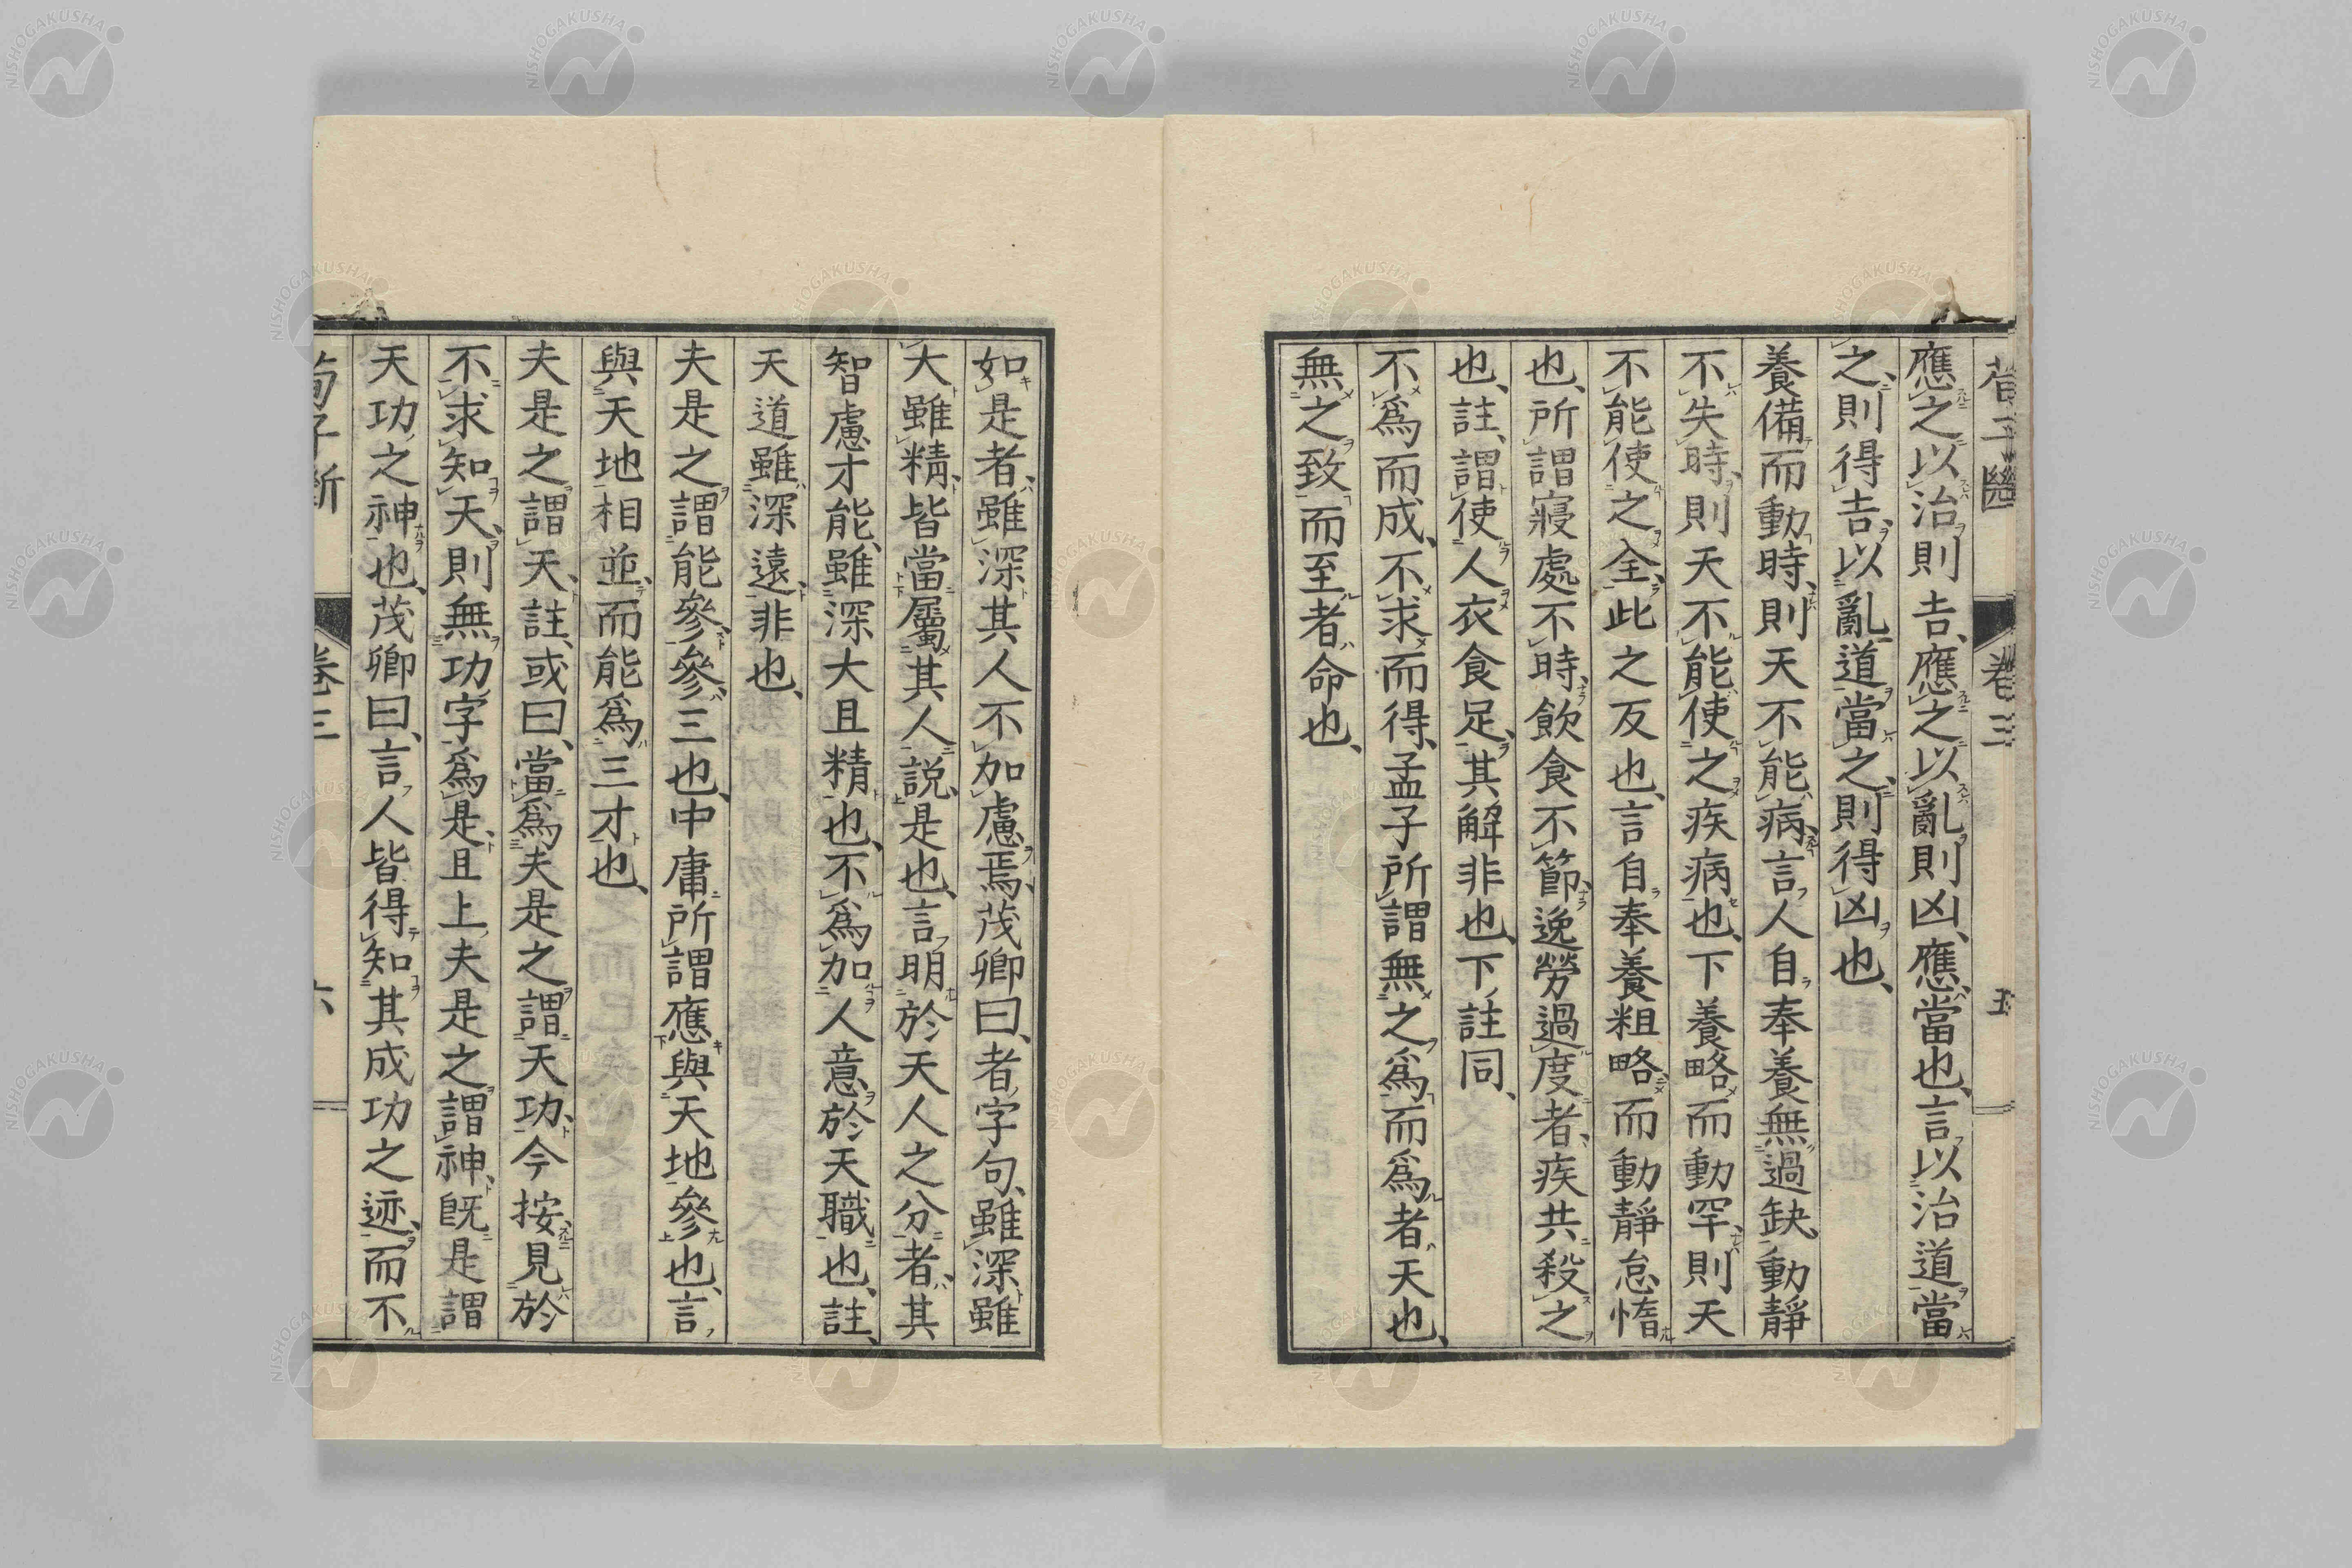 應之以治則吉、應之以亂則凶、應、當也、言以治道當
之、則得吉、以亂道當之、則得凶也、
養備而動時、則天不能病、言人自奉養無過缺、動靜
不失時、則天不能使之疾病也、下養略而動罕、則天
不能使之全、此之反也、言自奉養粗略、而動靜怠惰
也、所謂寢處不時、飲食不節、逸勞過度者、疾共殺之
也、註、謂使人衣食足、其解非也、下註同、
不爲而成、不求而得、孟子所謂無之爲而爲者、天也、
無之致而至者、命也、
卷三
五
如是者、雖深其人不加慮焉、茂卿曰、者字句、雖深雖
大雖精、皆當屬其人說、是也、言明於天人之分者、其
智慮才能、雖深大且精也、不爲加人意於天職也、註、
天道雖深遠、非也、
夫是之謂能參、參、三也、中庸所謂應與天地參也、言
與天地相並、而能爲三才也、
夫是之謂天、註、或曰、當爲夫是之謂天功、今按、見於
不求知天、則無功字爲是、且上夫是之謂神、旣是謂
天功之神也、茂卿曰、言人皆得知其成功之迹、而不
荀子斷
卷三
六
NISHOGAKUSHA